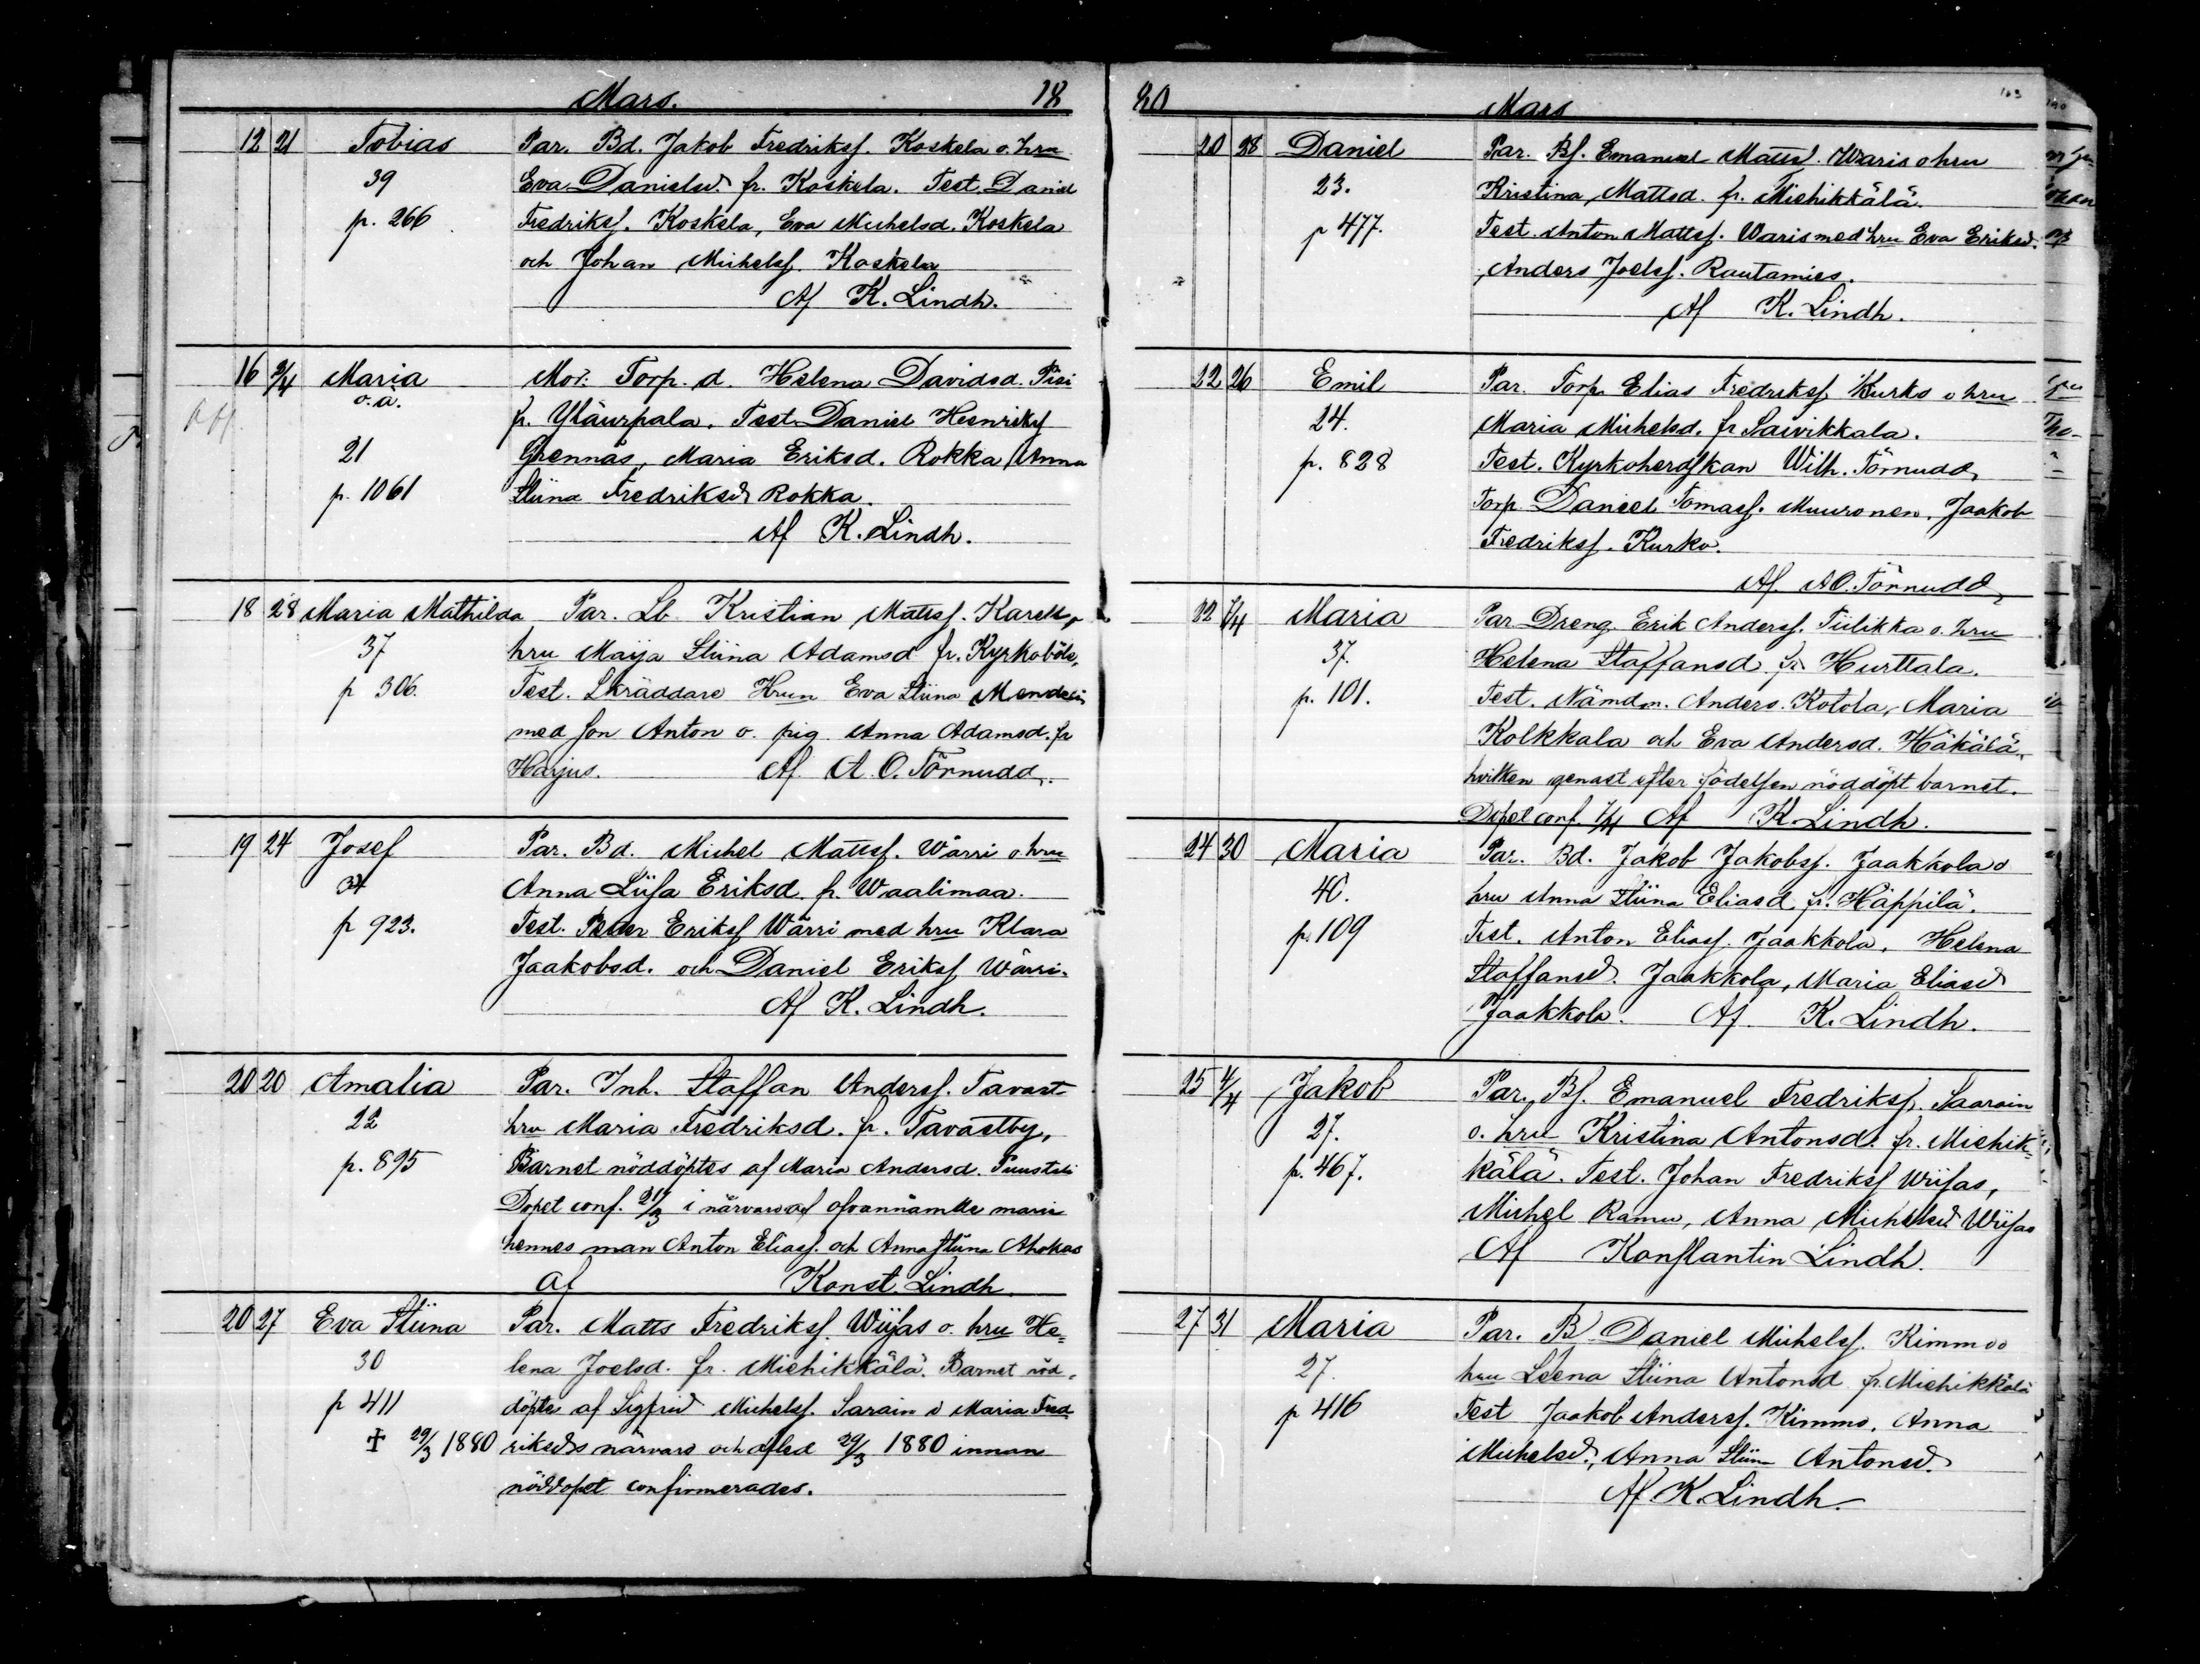 Mars. 18
12 21 Tobias Par. Bd. Jakob Fredriksf. Koskela o. hru
39 Eva Danielsd. fr. Koskela. Test. Daniel
p. 266 Fredriksf. Koskela, Eva Michelsd. Koskela
och Johan Michelsf. Koskela
Af K. Lindh.
16 2/4 Maria Mor: Torp. d. Helena Davidsd. Pisi
o.ä. fr. Yläurpala. Test. Daniel Heinriksf
21 Grennäs, Maria Eriksd. Rokka, Anna
p. 1061 Stiina Fredriksd Rokka.
Af K. Lindh.
18 28 Maria Mathilda Par. Lb. Kristian Mattsf. Karell o
37 hru Maija Stiina Adamsd fr. Kyrkoböle,
p 306. Test. Skräddare Hrun Eva Stiina
med son Anton o. pig. Anna Adamsd. fr
Harjus. Af A. O. Törnudd.
19 24 Josef Par. Bd. Michel Mattsf. Wärri o hru
34 Anna Liisa Eriksd. fr. Waalimaa.
p 923. Test. Peter Eriksf Wärri med hru Klara
Jaakobsd. och Daniel Eriksf Wärri.
Af K. Lindh.
20 20 Amalia Par. Inh. Staffan Andersf. Tavast
22 hru Maria Fredriksd. fr. Tavastby,
p. 895 Barnet nöddöptes af Maria Andersd.
Dopet conf. 21/3 i närvaro af ofvannämde maria
hennes man Anton Eliasf. och Anna Stiina Ahokas
af Konst. Lindh.
20 27 Eva Stiina Par. Matts Fredriksf. Wiifas o. hru He-
30 lena Joelsd. fr. Miehikkälä. Barnet nöd-
p 411 döptes af Sigfrid Michelsf. Sarain i Maria Fred
✝ 29/3 1880 riksds närvaro och afled 29/3 1880 innan
nöddopet confirmerades.
80 Mars 103
20 28 Daniel Par. Bf. Emanuel Mattsf. Waris o hru
23. Kristina Mattsd. fr. Miehikkälä.
p 477. Test. Anton Mattsf. Waris med hru Eva Eriksd.
Anders Joelsf. Rautamies.
Af K. Lindh.
22 26 Emil Par. Torp. Elias Fredriksf. Kurko o hru
24. Maria Michelsd. fr Saivikkala.
p. 828 Test. Kyrkoherdskan Wilh. Törnudd,
Torp Daniel Tomasf. Muuronen, Jaakob
Fredriksf. Kurko.
Af. A O. Törnudd
22 1/4 Maria Par Dreng Erik Andersf. Tiilikka o. hru
37. Helena Staffansd fr Hurttala.
p. 101. Test. Nämdm. Anders. Kotola, Maria
Kolkkala och Eva Andersd. Häkälä,
hvilken genast efter födelsen nöddöpt barnet.
Dopet conf. 1/4 Af K. Lindh.
24 30 Maria Par. Bd. Jakob Jakobsf. Jaakkola o
40. hru Anna Stiina Eliasd. fr. Häppilä.
p. 109 Test. Anton Eliasf. Jaakkola. Helena
Staffansd. Jaakkola, Maria Eliasd
Jaakkola. Af K. Lindh.
25 4/4 Jakob Par. Bf. Emanuel Fredriksf. Saarain
27. o. hru Kristina Antonsd. fr. Miehik-
p. 467. kälä. Test. Johan Fredriksf Wiifas,
Michel Ramu, Anna Michelsd Wiifas
Af Konstantin Lindh.
27 31 Maria Par. B Daniel Michelsf. Kimmo o
27. hru Leena Stiina Antonsd fr. Miehikkälä
p 416 Test Jaakob Andersf. Kimmo, Anna
Michelsd., Anna Stiina Antonsd.
Af K. Lindh.